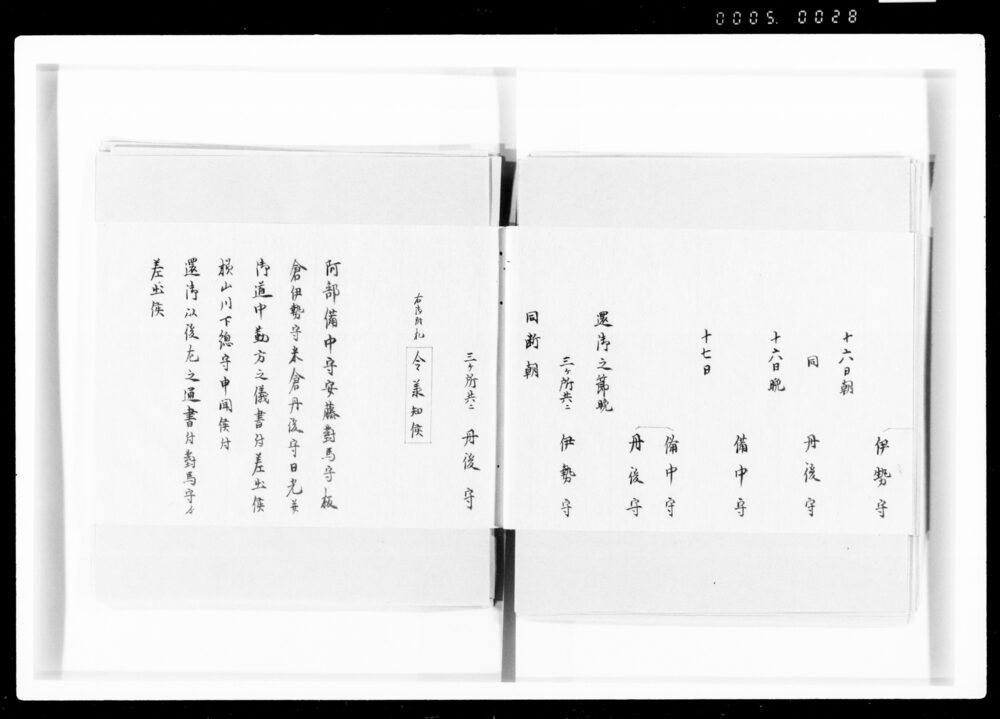 0005. 0028
伊勢守
十六日朝
丹後守
同
備中守
十六日晩
備中守
十七日
丹後守
還御之節晩
三ケ所共ニ 伊勢守
同断朝
三ケ所共ニ 丹後守
右御附札 令承知候
阿部備中守安藤對馬守板
倉伊勢守米倉丹後守日光并
御道中勤方之儀書付差出候
横山川下總守申聞候付
還御以後左之通書付對馬守ゟ
差出候